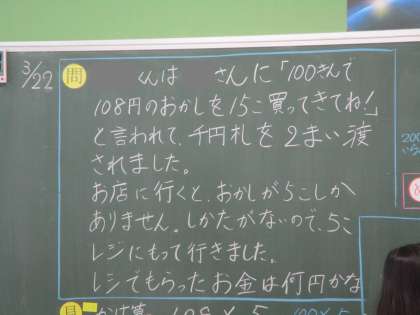 3/22
問
くんは さんに「100きんで
108円のおかしを15こ買ってきてね!」
と言われて、千円札を2まい渡
されました。
お店に行くと、おかしが5こしか
ありません。しかたがないので、5こ
レジにもって行きました。
レジでもらったお金は何円かな